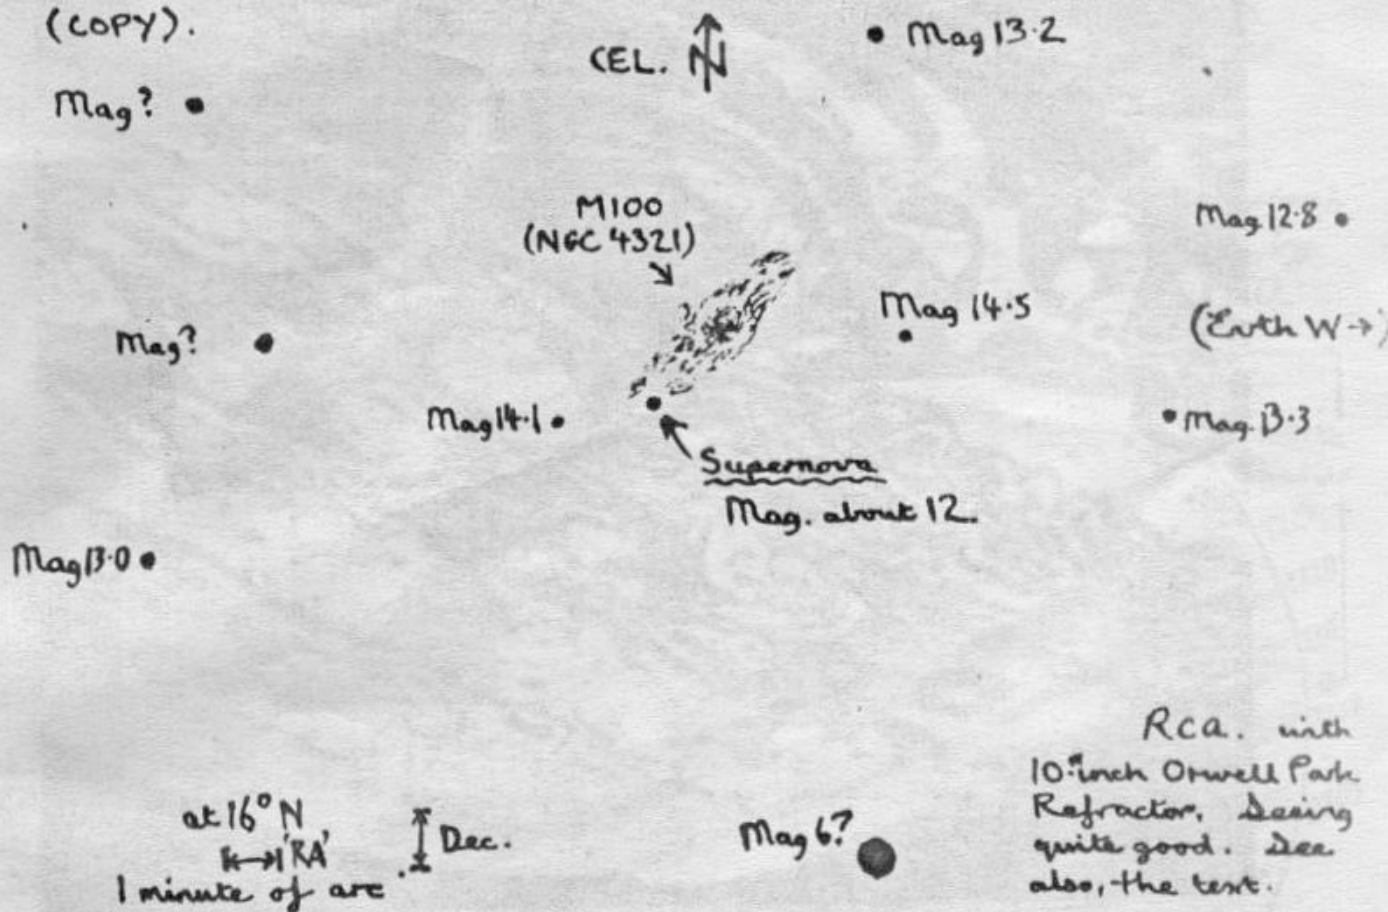 (COPY).
CEL. N
Mag 13.2
Mag?
M100
(NGC 4321)
Mag 12.8
Mag 14.5
(Earth W→)
Mag?
Mag 14.1
Mag. 13.3
Supernova
Mag. about 12.
Mag 13.0
at 16° N
'RA'
Dec.
1 minute of arc
Mag 6?
RCA. with
10-inch Orwell Park
Refractor. Seeing
quite good. See
also, the text.